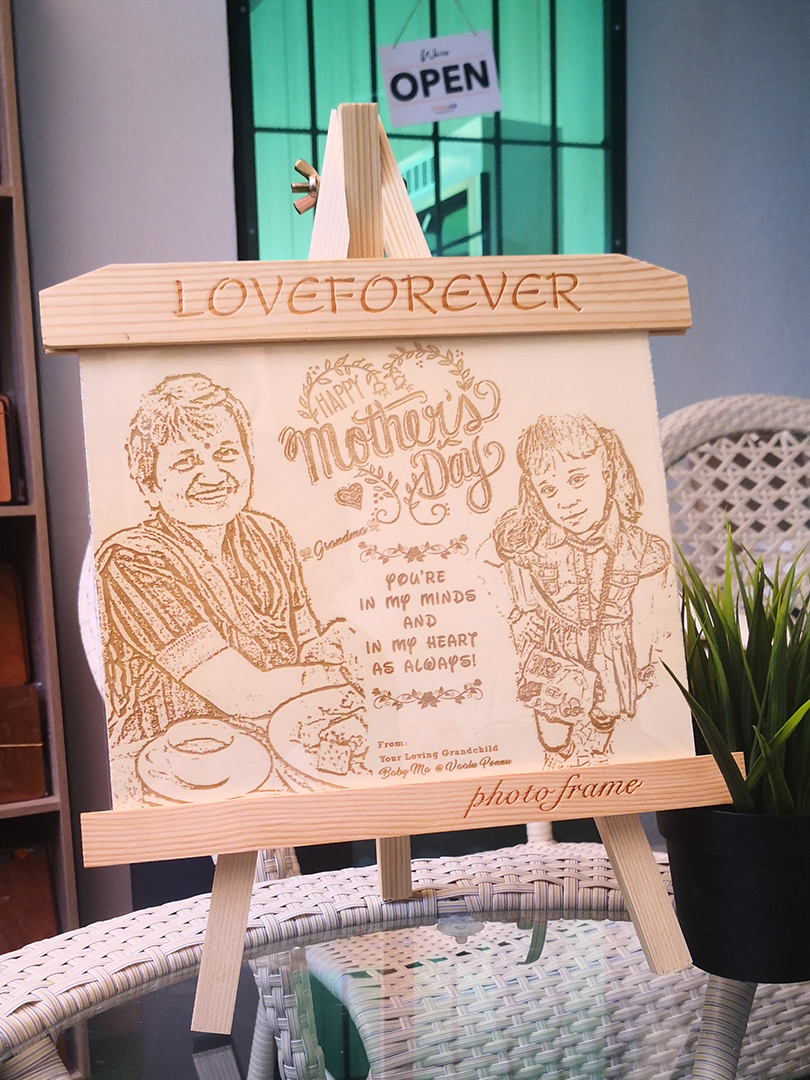 Welcome
OPEN
LOVEFOREVER
HAPPY
Mother's
Day
Grandma
YOU'RE
IN MY MINDS
AND
IN MY HEART
AS ALWAYS!
From:
Your Loving Grandchild
Baby Ma @ Vaalu Ponnu
photo frame